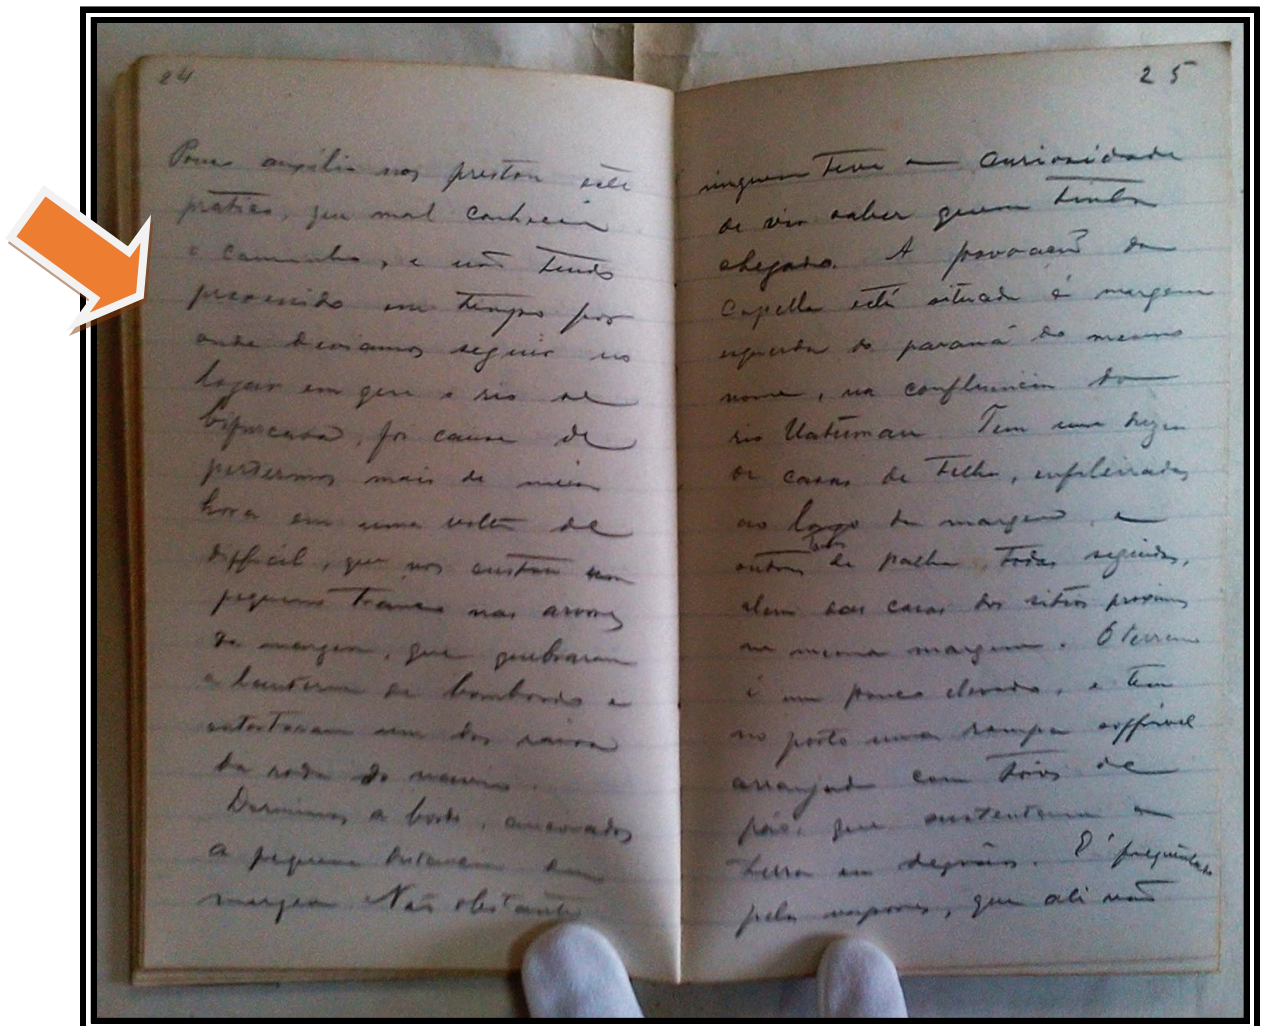 24
Pouco auxilio nos prestou este
pratico, que mal conhecia
o caminho, e não tendo
prevenido em tempo por
onde deviamos seguir no
logar em que o rio se
bifurcava, foi causa de
perdermos mais de meia
hora em uma volta
difficil, que nos custou um
pequeno nas arvores
da margem, que quebraram
a lanterna de bombordo e
entortaram um dos raios
da roda do navio.
Dormimos a bordo, ancorados
a pequena distancia da
margem. Não obstante
25
ninguem teve a curiosidade
de vir saber quem tinha
chegado. A povoação da
Capella está situada á margem
esquerda do paraná do mesmo
nome, na confluencia do
rio Uatuman. Tem uma dezena
de casas de telha, enfileiradas
ao longo da margem, e
outras de palha, todas
alem das casas dos sitios proximos
na mesma margem. O terreno
é um pouco elevado, e tem
no porto uma rampa soffrivel
arranjada com toros de
páo, que sustentam a
terra em degráos. É frequentado
pelos vapores, que ali vão